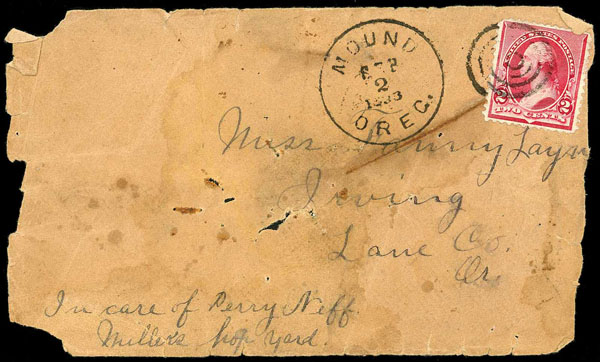 MOUND
2
1893
OREG.
UNITED STATES POSTAGE
2 2
TWO CENTS
Miss
Irving
Lane Co.
Or.
In care of Perry Neff
Millers hop yard.